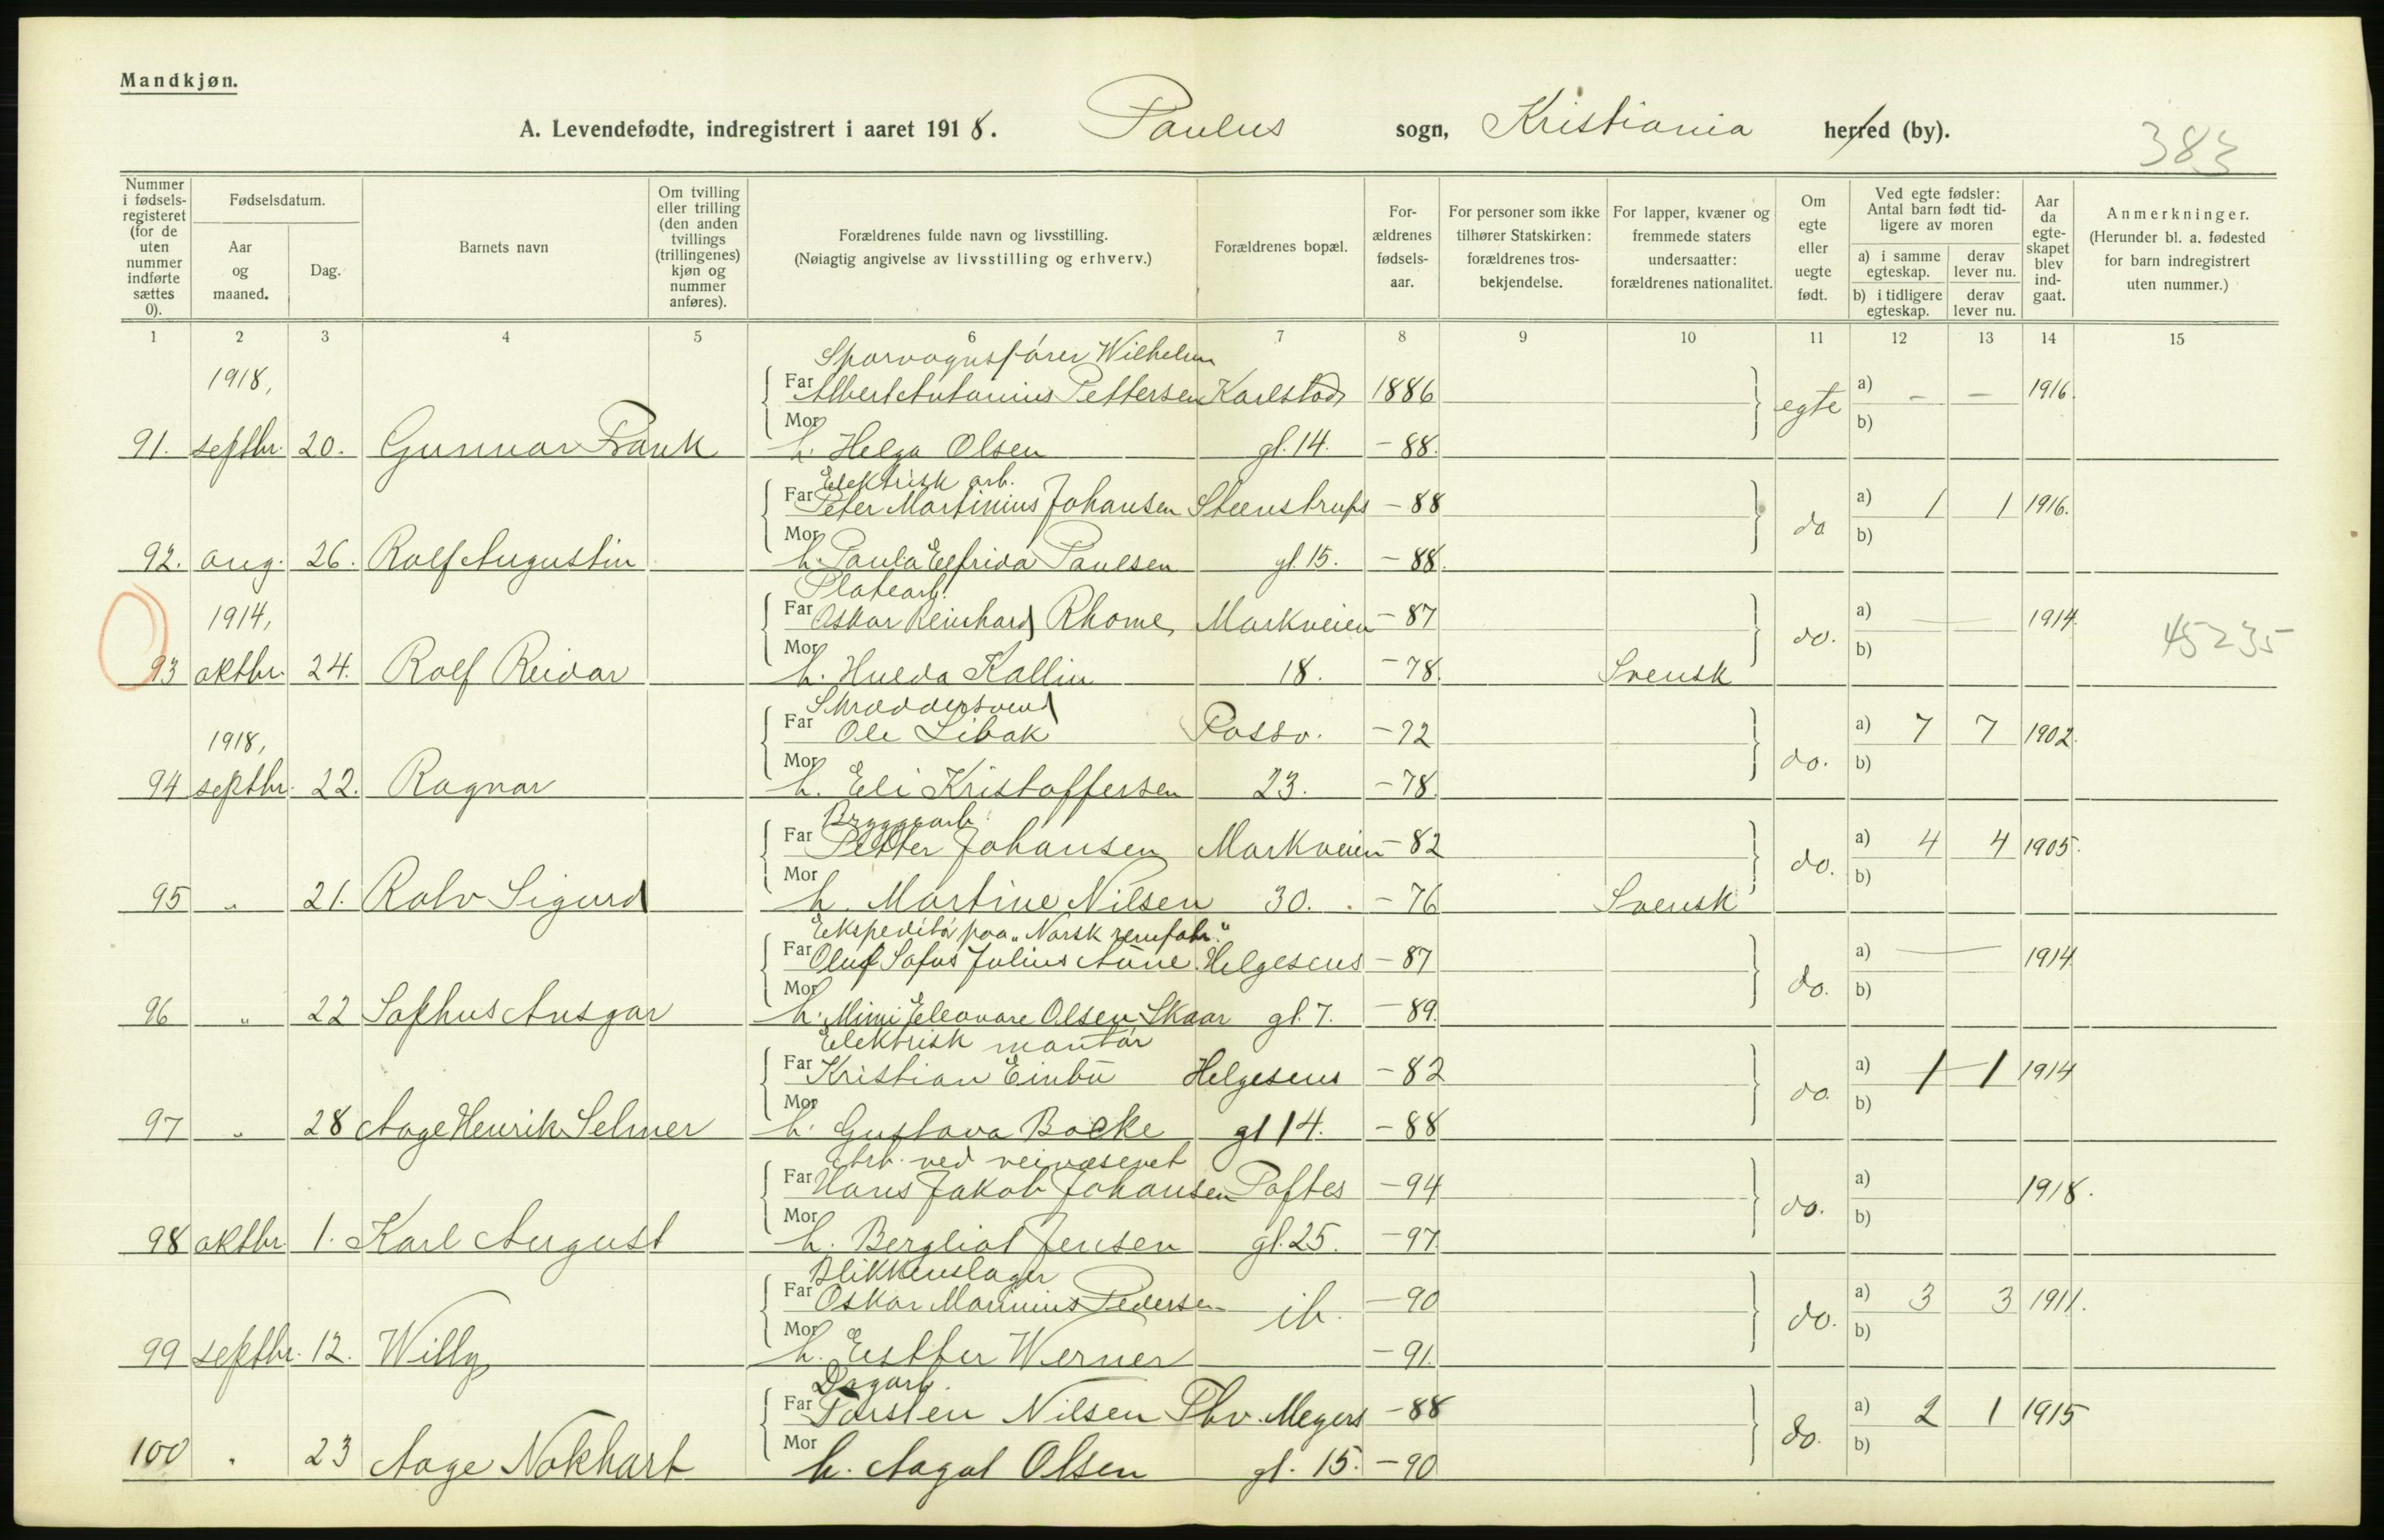 Mandkjøn.
A. Levendefødte, indregistrert i aaret 1918. Paulus sogn, Kristiania herred (by).
383
Nummer i fødsels-registeret (for de uten nummer indførte sættes 0).
Fødselsdatum.
Aar og maaned.
Dag.
Barnets navn
Om tvilling eller trilling (den anden tvillings (trillingenes) kjøn og nummer anføres).
Forældrenes fulde navn og livsstilling.
(Nøiagtig angivelse av livsstilling og erhverv.)
Forældrenes bopæl.
For-ældrenes fødsels-aar.
For personer som ikke tilhører Statskirken: forældrenes tros-bekjendelse.
For lapper, kvæner og fremmede staters undersaatter: forældrenes nationalitet.
Om egte eller uegte født.
Ved egte fødsler: Antal barn født tid-ligere av moren
a) i samme egteskap. derav lever nu.
b) i tidligere egteskap. derav lever nu.
Aar da egte-skapet blev ind-gaat.
Anmerkninger.
(Herunder bl. a. fødested for barn indregistrert uten nummer.)
1 2 3 4 5 6 7 8 9 10 11 12 13 14 15
Sporvognsfører Wilhelm
1918, Far Albert Antonius Pettersen Karlstads 1886 egte a) - - 1916.
91. septbr. 20. Gunnar Frank Mor h. Helga Olsen gl. 14. - 88. b)
Elektrisk arb.
Far Peter Martinius Johansen Steenstrups - 88 do a) 1 1 1916.
92. aug. 26. Rolf Augustin Mor h. Paula Elfrida Paulsen gl. 15. - 88. b)
Platearb.
1914, Far Oskar Reinhard Rhome, Markveien - 87 do. a) — — 1914. 45235
93 oktbr. 24. Rolf Reidar Mor h. Hulda Kallin 18. - 78. Svensk b)
Skræddersvend
1918, Far Ole Libak Fossv. - 72 do. a) 7 7 1902.
94 septbr. 22. Ragnar Mor h. Eli Kristoffersen 23. - 78. b)
Bryggearb.
Far Petter Johansen Markveien - 82 do. a) 4 4 1905.
95 " 21. Rolv Sigurd Mor h. Martine Nilsen 30. - 76 Svensk b)
Ekspeditør paa "Norsk remfabr."
Far Oluf Sofus Julius Aune Helgesens - 87 do. a) — — 1914
96 " 22 Sophus Ansgar Mor h. Mimi Eleonore Olsen Skaar gl. 7. - 89. b)
Elektrisk montør
Far Kristian Einbu Helgesens - 82 do. a) 1 1 1914
97 " 28 Aage Henrik Selmer Mor h. Gustava Bakke gl 14. - 88 b)
Arb. ved veivæsenet
Far Hans Jakob Johansen Toftes - 94 do. a) 1918.
98 oktbr. 1. Karl August Mor h. Bergliot Jensen gl. 25. - 97. b)
Blikkenslager
Far Oskar Marinius Pedersen ib. - 90 do. a) 3 3 1911.
99 septbr. 12. Willy Mor h. Esther Werner - 91. b)
Dagarb.
Far Torsten Nilsen Thv. Meyers - 88 do. a) 2 1 1915
100 " 23 Aage Nokhart Mor h. Aagot Olsen gl. 15. - 90 b)